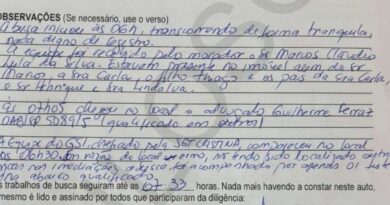 OBSERVAÇÕES (Se necessário, use o verso)
A busca iniciou às 06h, transcorrendo de forma tranquila,
nada digno de registro.
A equipe foi recebida pelo morador o Sr Marcos Cláudio
Lula da Silva. Estavam presente no imóvel além do Sr
Marcos, a Sra Carla, o filho Thiago e os pais da Sra Carla,
o Sr Henrique e Sra Lindalva.
Às 07h05 chegou no local o advogado Guilherme Ferraz
OAB/SP 508915 qualificado em
A equipe do GSI, chefiada pela SGT CRISTINA, compareceu no local
às 06h30. Em razão do local ermo, não tendo sido localizado
nas imediações, a busca foi acompanhada por apenas 01
abaixo qualificado.
s trabalhos de busca seguiram até as 07:33 horas. Nada mais havendo a constar neste auto,
mesmo é lido e assinado por todos que participaram da diligência: